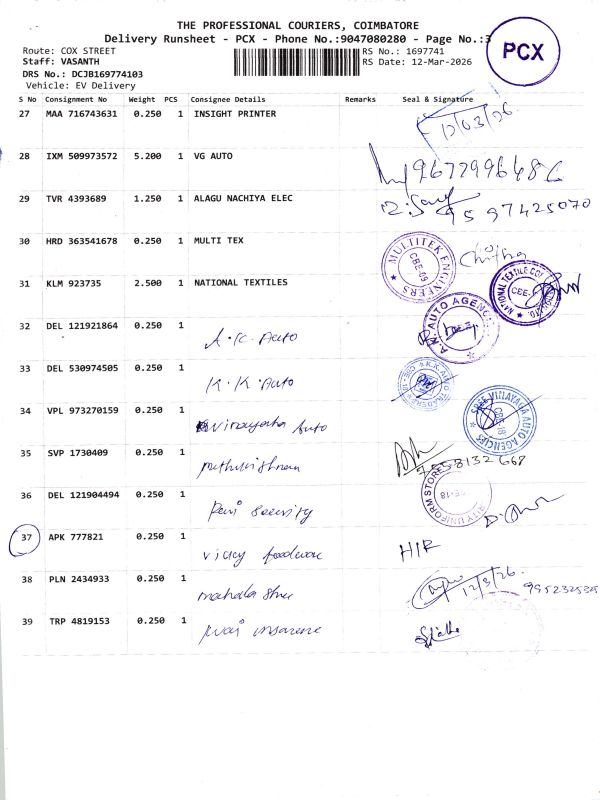 THE PROFESSIONAL COURIERS, COIMBATORE
Delivery Runsheet - PCX - Phone No.:9047080280 - Page No.:3
PCX
Route: COX STREET
RS No.: 1697741
Staff: VASANTH
RS Date: 12-Mar-2026
DRS No.: DCJB169774103
Vehicle: EV Delivery
S No Consignment No Weight PCS Consignee Details Remarks Seal & Signature
27 MAA 716743631 0.250 1 INSIGHT PRINTER 12/03/26
28 IXM 509973572 5.200 1 VG AUTO
29 TVR 4393689 1.250 1 ALAGU NACHIYA ELEC 9597425070
30 HRD 363541678 0.250 1 MULTI TEX MULTITEK ENGINEERS CBE-09
31 KLM 923735 2.500 1 NATIONAL TEXTILES
32 DEL 121921864 0.250 1 A.K. Auto
33 DEL 530974505 0.250 1 K.K. Auto
34 VPL 973270159 0.250 1 vinayaha Auto SREE VINAYAGA AUTO AGENCIES CBE-18
35 SVP 1730409 0.250 1
36 DEL 121904494 0.250 1 UNIFORM STORES
37 APK 777821 0.250 1 HIR
38 PLN 2434933 0.250 1 12/3/26
39 TRP 4819153 0.250 1